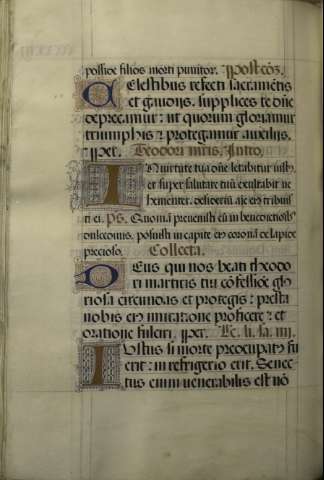 possioē filios morti punitor. Postcōs.
Celestibus refecti sacramētis
et gaudiis. supplices te dn̄e
deprecamur: ut quorum gloriamur
triumphis protegamur auxiliis.
per. Teodori mr̄is. Intro.
In uirtute tua dn̄e letabitur iustꝰ
et super salutare tuū exultabit ue
hementer. desideriū aīe eiꝰ tribuis
ti ei. Ps. Quoniā preuenisti eū in benedictioībꝰ
dulcedinis. posuisti in capite eiꝰ coronā de lapide
precioso. Collecta.
Deus qui nos beati theodo
ri martiris tui cōfessiōe glo
riosa circundas et protegis: presta
nobis eiꝰ imitatione proficere: et
oratione fulciri. per. Lc. li. sa. iiii.
Iustus si morte preocupatꝰ fu
erit: in refrigerio erit. Senec
tus enim uenerabilis est nō